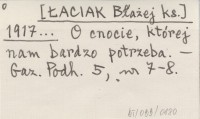 [ŁACIAK Błażej ks.]
1917... O cnocie, której
nam bardzo potrzeba. —
Gaz. Podh. 5, nr 7-8.